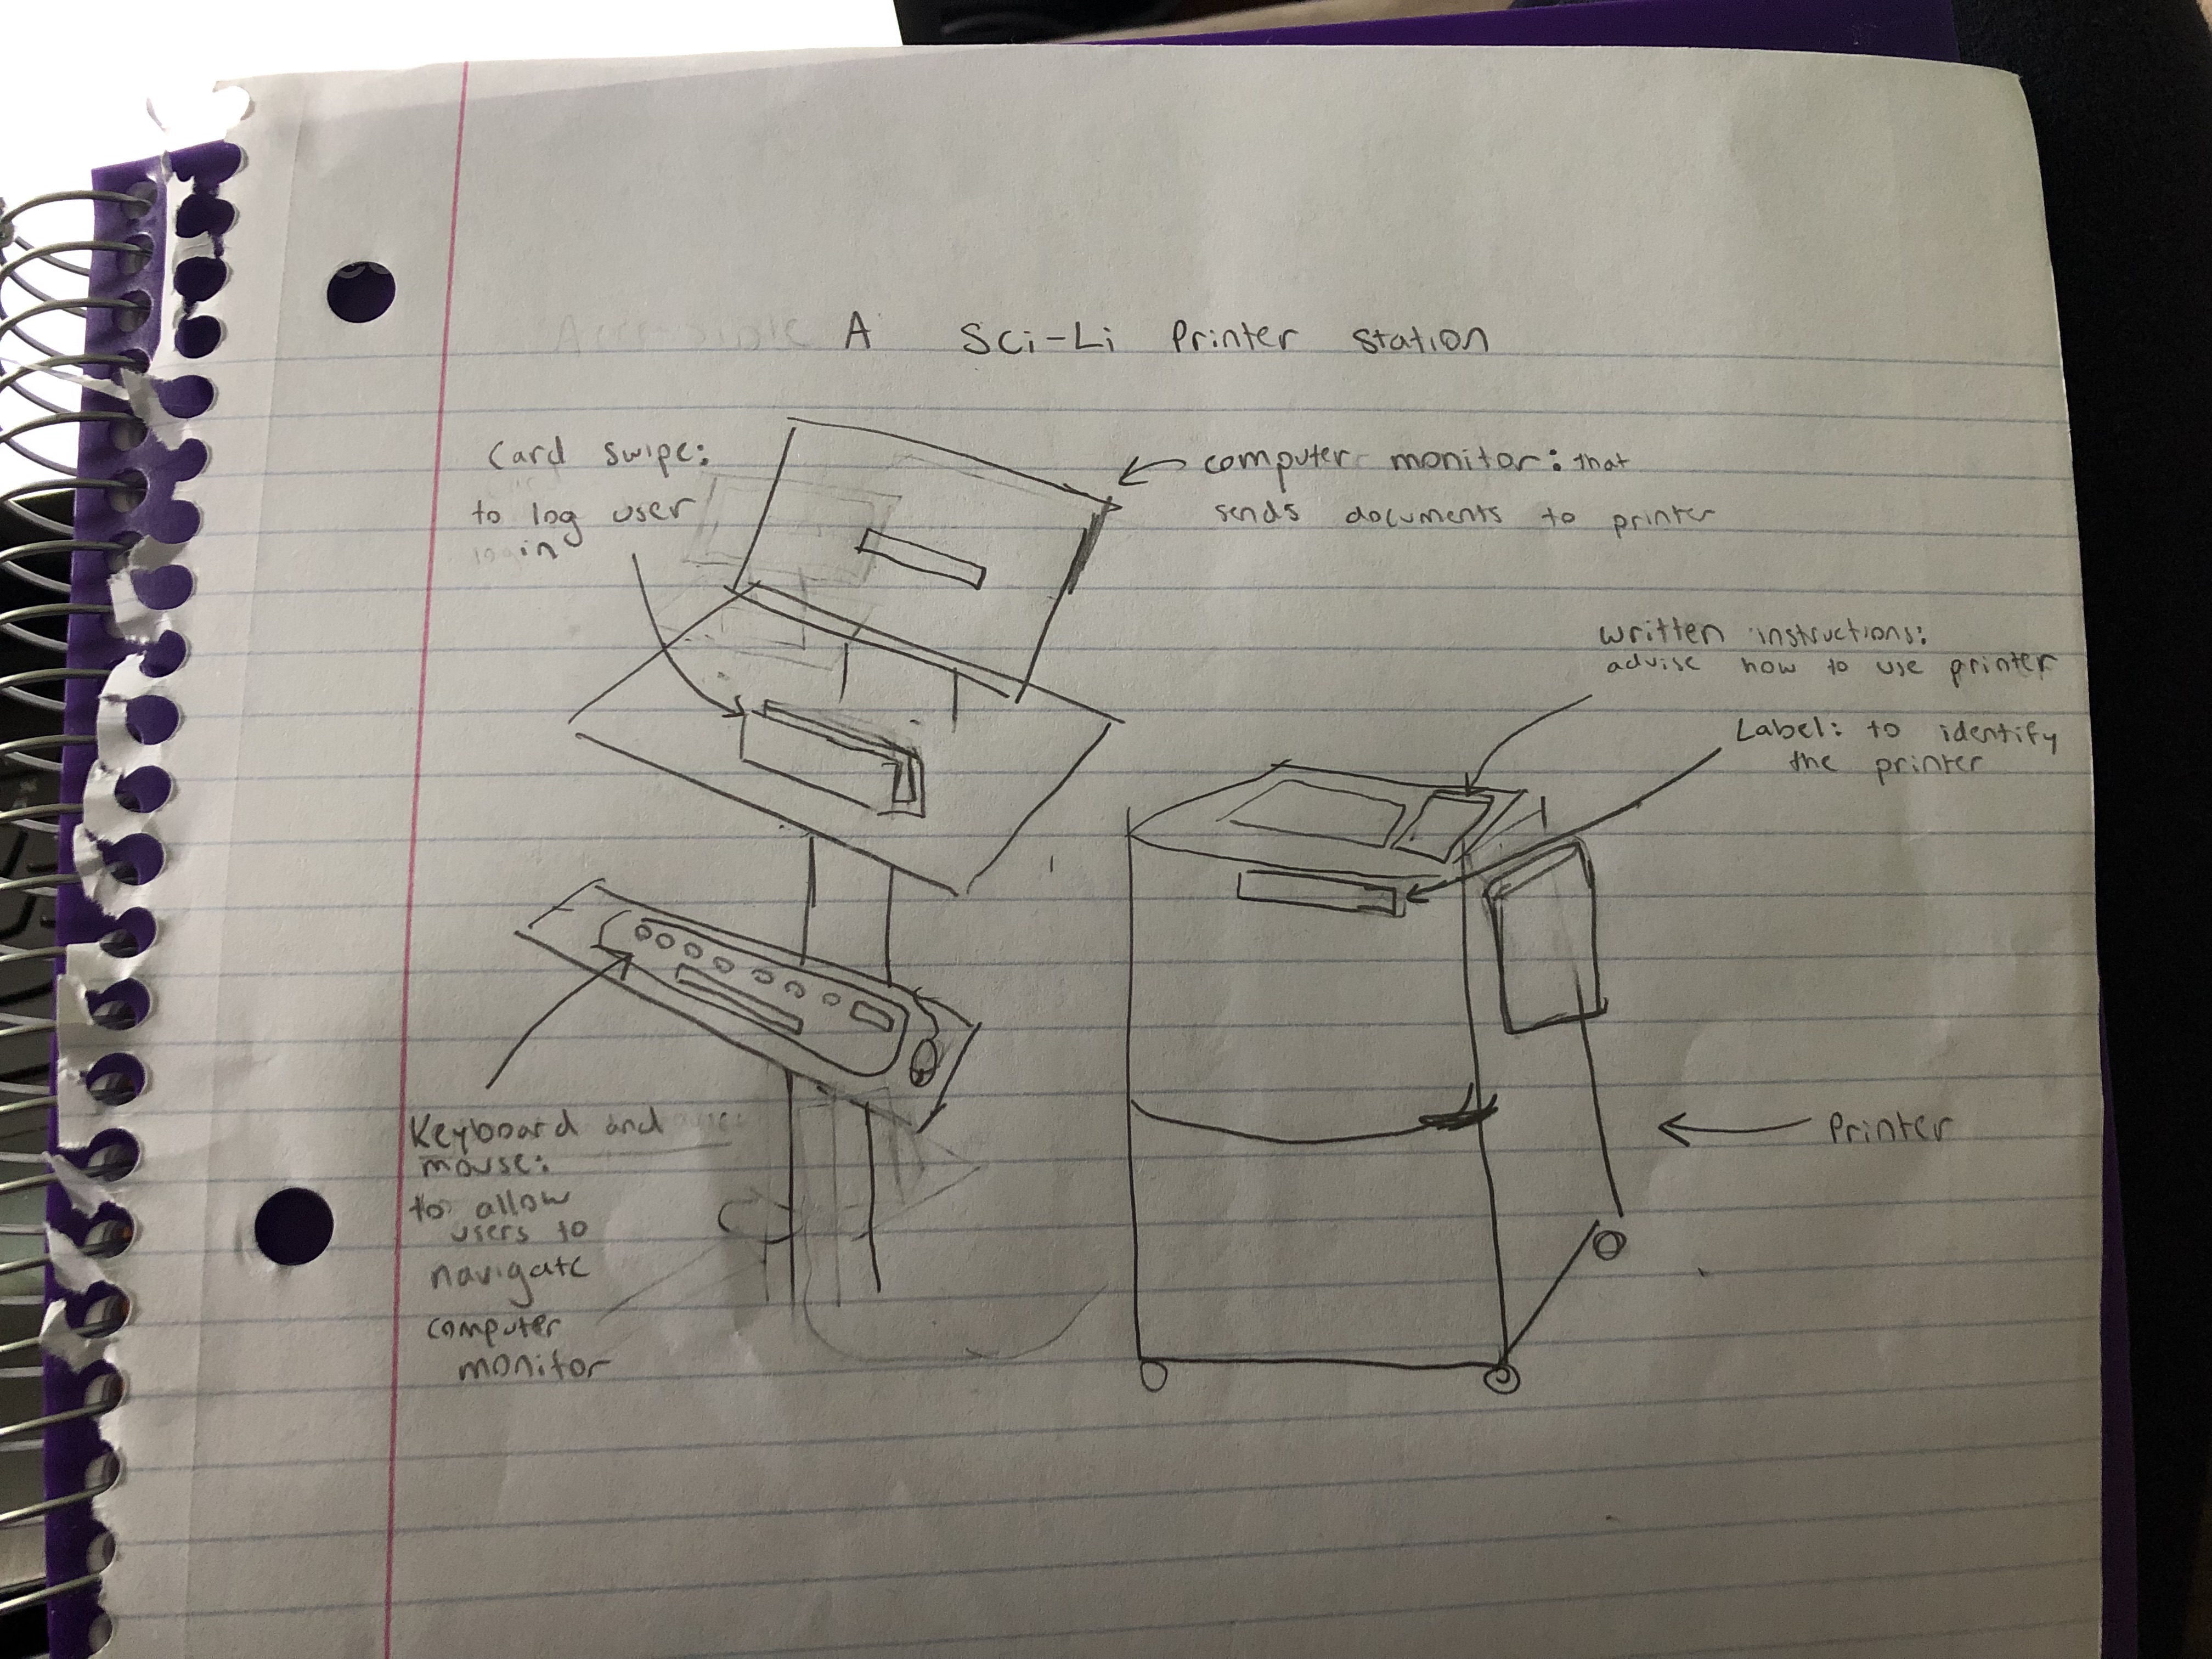 A Sci-Li Printer Station
Card swipe:
to log user
in
computer monitor: that
sends documents to printer
written instructions:
advise how to use printer
Label: to identify
the printer
Keyboard and
mouse:
to allow
users to
navigate
computer
monitor
Printer